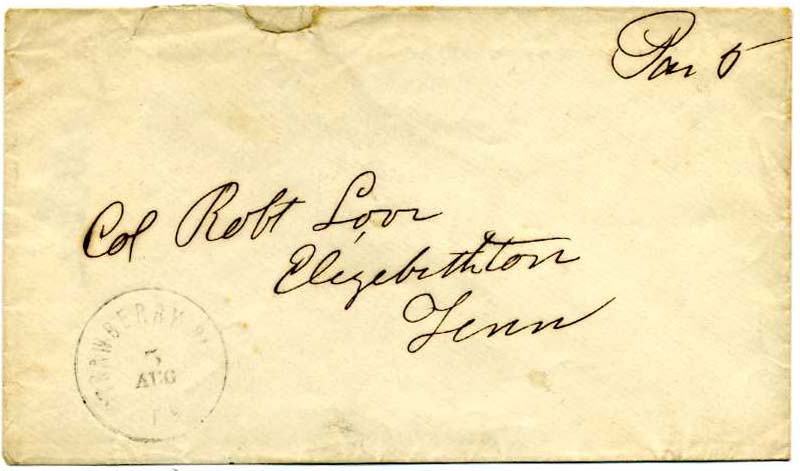 Paid 5
Col Robt Love
Elizebethton
Tenn
5
AUG